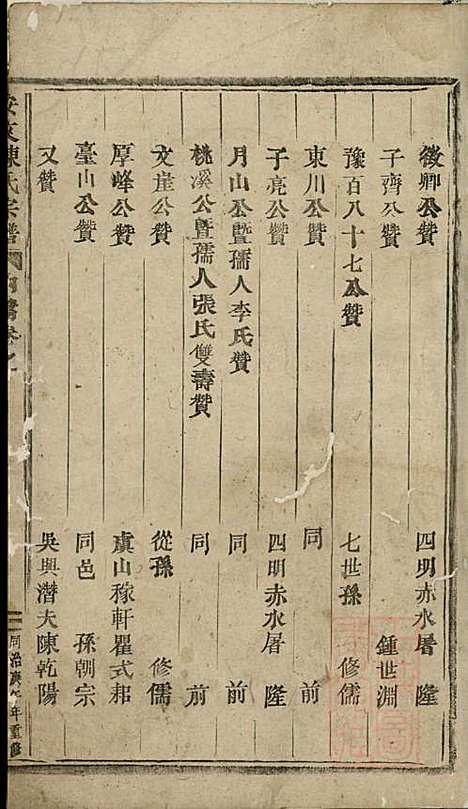 徵卿公贊 四明赤水屠 隆
子齊公贊 鍾世淵
豫百八十七公贊 七世孫 修儒
東川公贊 同 前
子亮公贊 四明赤水屠 隆
月山公暨孺人李氏贊 同 前
桃溪公暨孺人張氏雙壽贊 同 前
文崖公贊 從孫 修儒
厚峰公贊 虞山稼軒瞿式耜
臺山公贊 同邑 孫朝宗
又贊 吳興潛夫陳乾陽
陳氏宗譜
同治庚午年重修